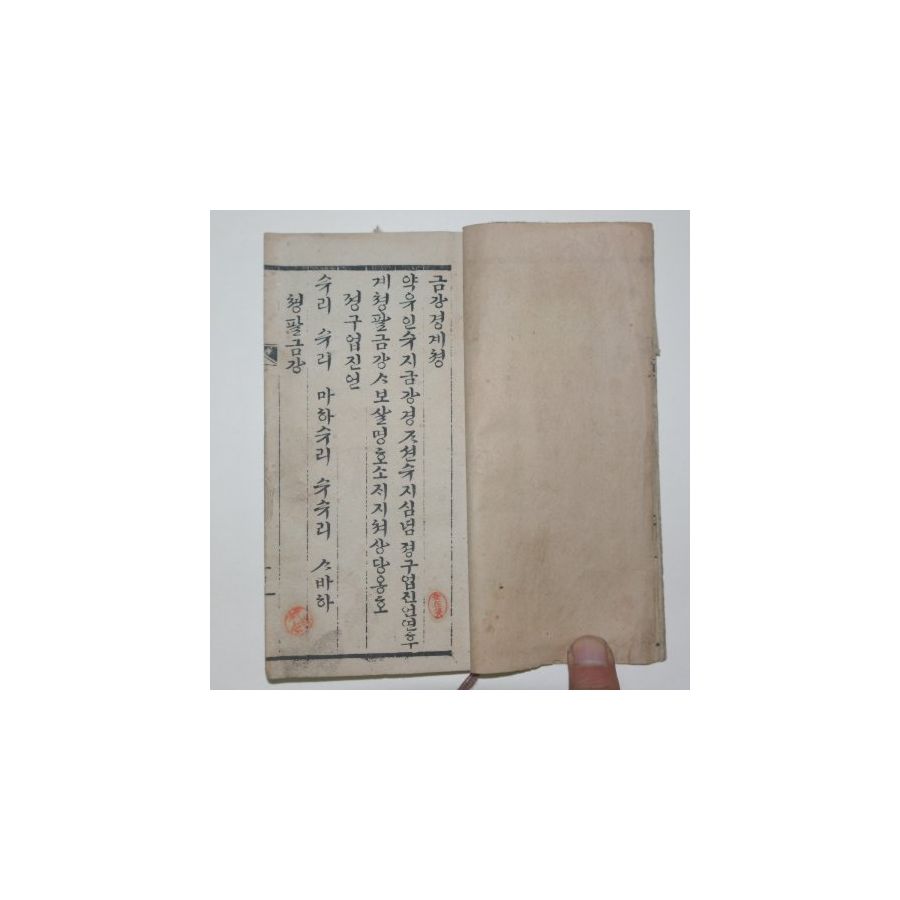 금강경계쳥
약유인슈지금강경ᄌᆞ션슈지심념졍구업진언연후
계쳥팔금강ᄉᆞ보살명호소ᄌᆡ지쳐상당옹호
졍구업진언
슈리 슈리 마하슈리 슈슈리 ᄉᆞ바하
쳥팔금강